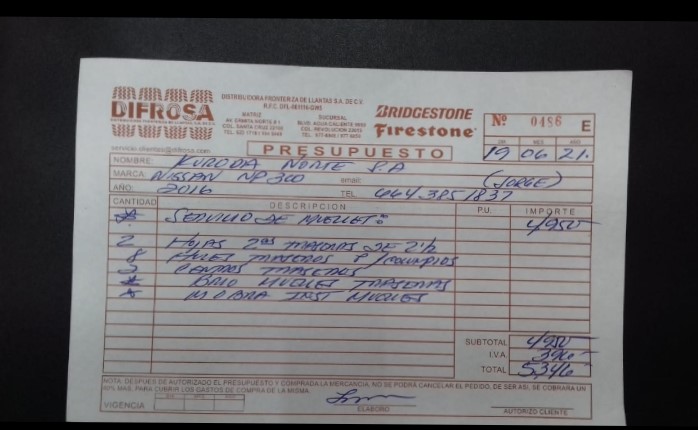 DIFROSA
DISTRIBUIDORA FRONTERIZA DE LLANTAS S.A. DE C.V.
MATRIZ
SUCURSAL
COL. SANTA CRUZ
BLVD. AGUA CALIENTE
COL. REVOLUCION
BRIDGESTONE
Firestone
Nº 0486 E
servicio.clientes@difrosa.com
PRESUPUESTO
DIA MES AÑO
19 06 21.
NOMBRE: KURODA NORTE S.A
MARCA: NISSAN NP300 email: (JORGE)
AÑO: 2016 TEL. 664 385 1837
CANTIDAD DESCRIPCION P.U. IMPORTE
* SERVICIO DE MUELLES: 4,950
2 HOJAS 2as TRASERAS DE 2½
8 HULES TRASEROS P/COLUMPIOS
2 TRASEROS
* MUELLES TRASERAS
* M. OBRA INST MUELLES
SUBTOTAL 4,950
I.V.A. 396
TOTAL 5,346
NOTA: DESPUES DE AUTORIZADO EL PRESUPUESTO Y COMPRADA LA MERCANCIA, NO SE PODRÁ CANCELAR EL PEDIDO, DE SER ASI, SE COBRARA UN
MAS, PARA CUBRIR LOS GASTOS DE COMPRA DE LA MISMA.
VIGENCIA DIA MES AÑO
ELABORO
AUTORIZO CLIENTE